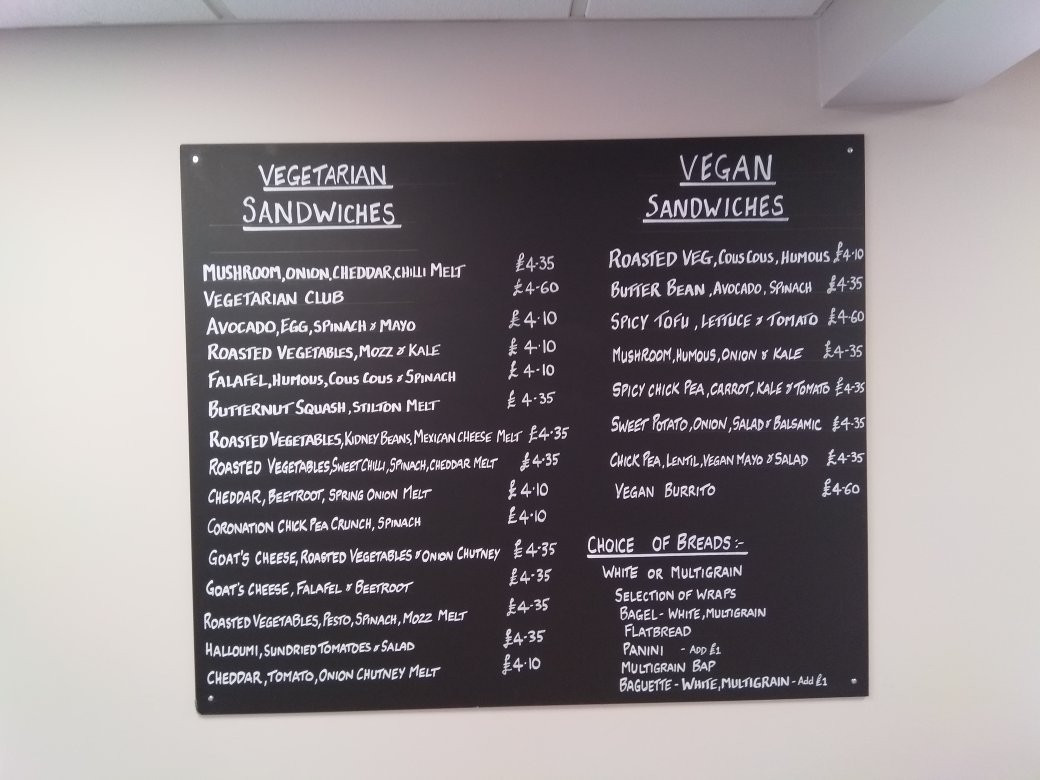 VEGETARIAN
SANDWICHES
MUSHROOM, ONION, CHEDDAR, CHILLI MELT £4.35
VEGETARIAN CLUB £4-60
AVOCADO, EGG, SPINACH & MAYO £4.10
ROASTED VEGETABLES, MOZZ & KALE £4.10
FALAFEL, HUMOUS, COUS COUS & SPINACH £4.10
BUTTERNUT SQUASH, STILTON MELT £4.35
ROASTED VEGETABLES, KIDNEY BEANS, MEXICAN CHEESE MELT £4.35
ROASTED VEGETABLES, SWEET CHILLI, SPINACH, CHEDDAR MELT £4.35
CHEDDAR, BEETROOT, SPRING ONION MELT £4.10
CORONATION CHICK PEA CRUNCH, SPINACH £4.10
GOAT'S CHEESE, ROASTED VEGETABLES & ONION CHUTNEY £4-35
GOAT'S CHEESE, FALAFEL & BEETROOT £4-35
ROASTED VEGETABLES, PESTO, SPINACH, MOZZ MELT £4-35
HALLOUMI, SUNDRIED TOMATOES & SALAD £4.35
CHEDDAR, TOMATO, ONION CHUTNEY MELT £4.10
VEGAN
SANDWICHES
ROASTED VEG, COUS COUS, HUMOUS £4.10
BUTTER BEAN, AVOCADO, SPINACH £4.35
SPICY TOFU, LETTUCE & TOMATO £4-60
MUSHROOM, HUMOUS, ONION & KALE £4-35
SPICY CHICK PEA, CARROT, KALE & TOMATO £4-35
SWEET POTATO, ONION, SALAD & BALSAMIC £4.35
CHICK PEA, LENTIL, VEGAN MAYO & SALAD £4-35
VEGAN BURRITO £4-60
CHOICE OF BREADS:-
WHITE OR MULTIGRAIN
SELECTION OF WRAPS
BAGEL - WHITE, MULTIGRAIN
FLATBREAD
PANINI - ADD £1
MULTIGRAIN BAP
BAGUETTE - WHITE, MULTIGRAIN - Add £1